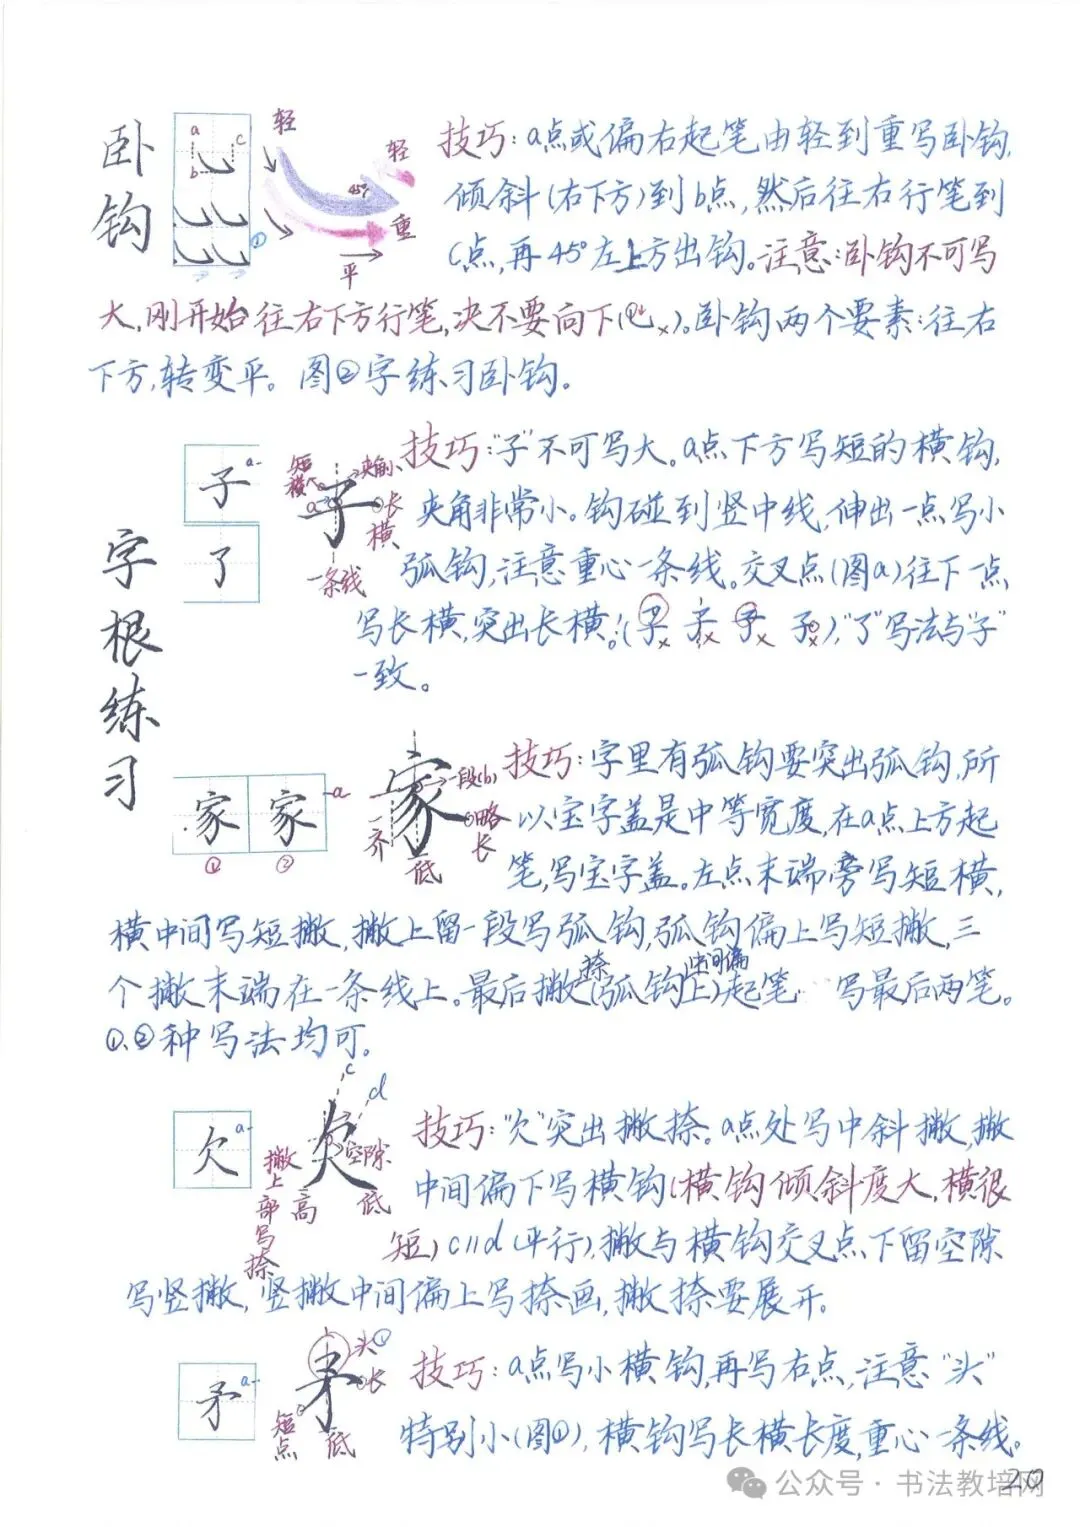 卧钩
a
c
b
①
轻
轻
45°
重
平
技巧:a点或偏右起笔由轻到重写卧钩,
倾斜(右下方)到b点,然后往右行笔到
C点,再45°左上方出钩。注意:卧钩不可写
大,刚开始往右下方行笔,决不要向下(×)。卧钩两个要素:往右
下方,转变平。图②字练习卧钩。
字根练习
子
a
了
短横
夹角小
a
子
长横
一条线
技巧:“子”不可写大。a点下方写短的横钩,
夹角非常小。钩碰到竖中线,伸出一点写小
弧钩,注意重心一条线。交叉点(图a)往下一点
写长横,突出长横。(子× 子× 子× 子×),“了”写法与“子”
一致。
家 家
a
① ②
家
一段(b)
略长
齐
低
技巧:字里有弧钩要突出弧钩,所
以宝字盖是中等宽度,在a点上方起
笔,写宝字盖。左点末端旁写短横,
横中间写短撇,撇上留一段写弧钩,弧钩偏上写短撇,三
捺
中间偏
个撇末端在一条线上。最后撇(弧钩上)起笔 写最后两笔。
①、②种写法均可。
欠
a
c
d
欠
空隙
撇上部写捺
高
低
技巧:“欠”突出撇捺。a点处写中斜撇,撇
中间偏下写横钩(横钩倾斜度大,横很
短)c∥d(平行),撇与横钩交叉点下留空隙
写竖撇,竖撇中间偏上写捺画,撇捺要展开。
矛
a
矛
头①
长
短点
低
技巧:a点写小横钩,再写右点,注意“头”
特别小(图①),横钩写长横长度,重心一条线。
公众号·书法教培网
20